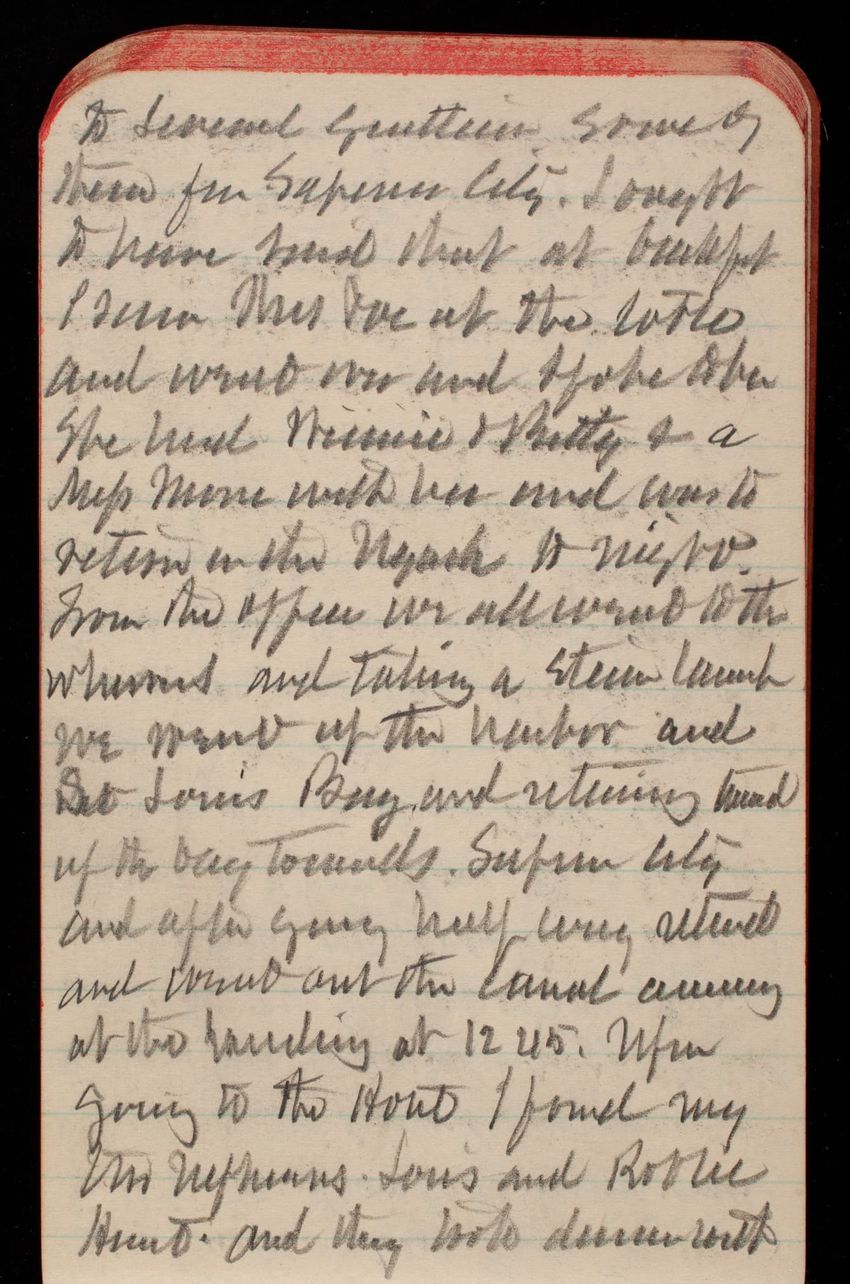 to several gentlemen. Some of
them from Superior City. I ought
to have said that at breakfast
I saw Mrs Poe at the hotel
and went over and spoke to her
She had Winnie & Betty & a
Miss Moore with her and was to
return on the Nyack to night.
From the office we all went to the
wharves and taking a steam launch
we went up the harbor and
St Louis Bay and returning turned
up the bay towards. Superior City
and after going half way returned
and went out the canal arriving
at the landing at 12 45. Upon
going to the Hotel I found my
two nephews. Louis and Robbie
Hunt. and they took dinner with